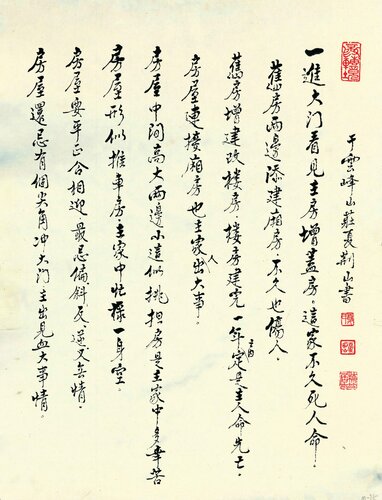 于雲峰山莊夏荆山書
一進大门看見主房增蓋房。這家不久死人命.
舊房两邊添建廂房不久也傷人.
舊房增建改楼房楼房建完一年定是主人命先亡.
房屋連接廂房也主家人出大事.
房屋中间高大两邊小這似挑担房是主家中多辛苦
房屋形似推車房主家中忙祿一身空.
房屋要平正合相迎最忌偏斜反逆又無情.
房屋還忌有個尖角冲大门主出見血大事情.